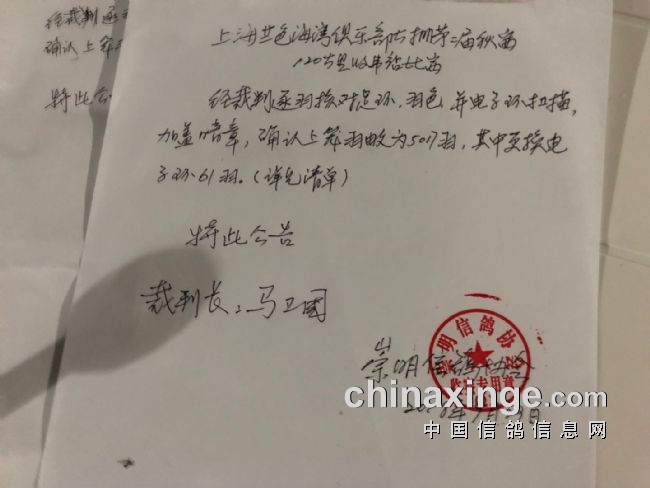 经裁判逐羽
确认上笼
特此公
上海兰色海湾俱乐部 第二届秋赛
经裁判逐羽核对足环，羽色并电子环扫描，
加盖暗章，确认上笼羽数为5017羽，其中更换电
子环61羽。（详见清单）
特此公告
裁判长：马卫国
崇明信鸽协会
崇明信鸽协会
专用章
chinaxinge.com
中国信鸽信息网